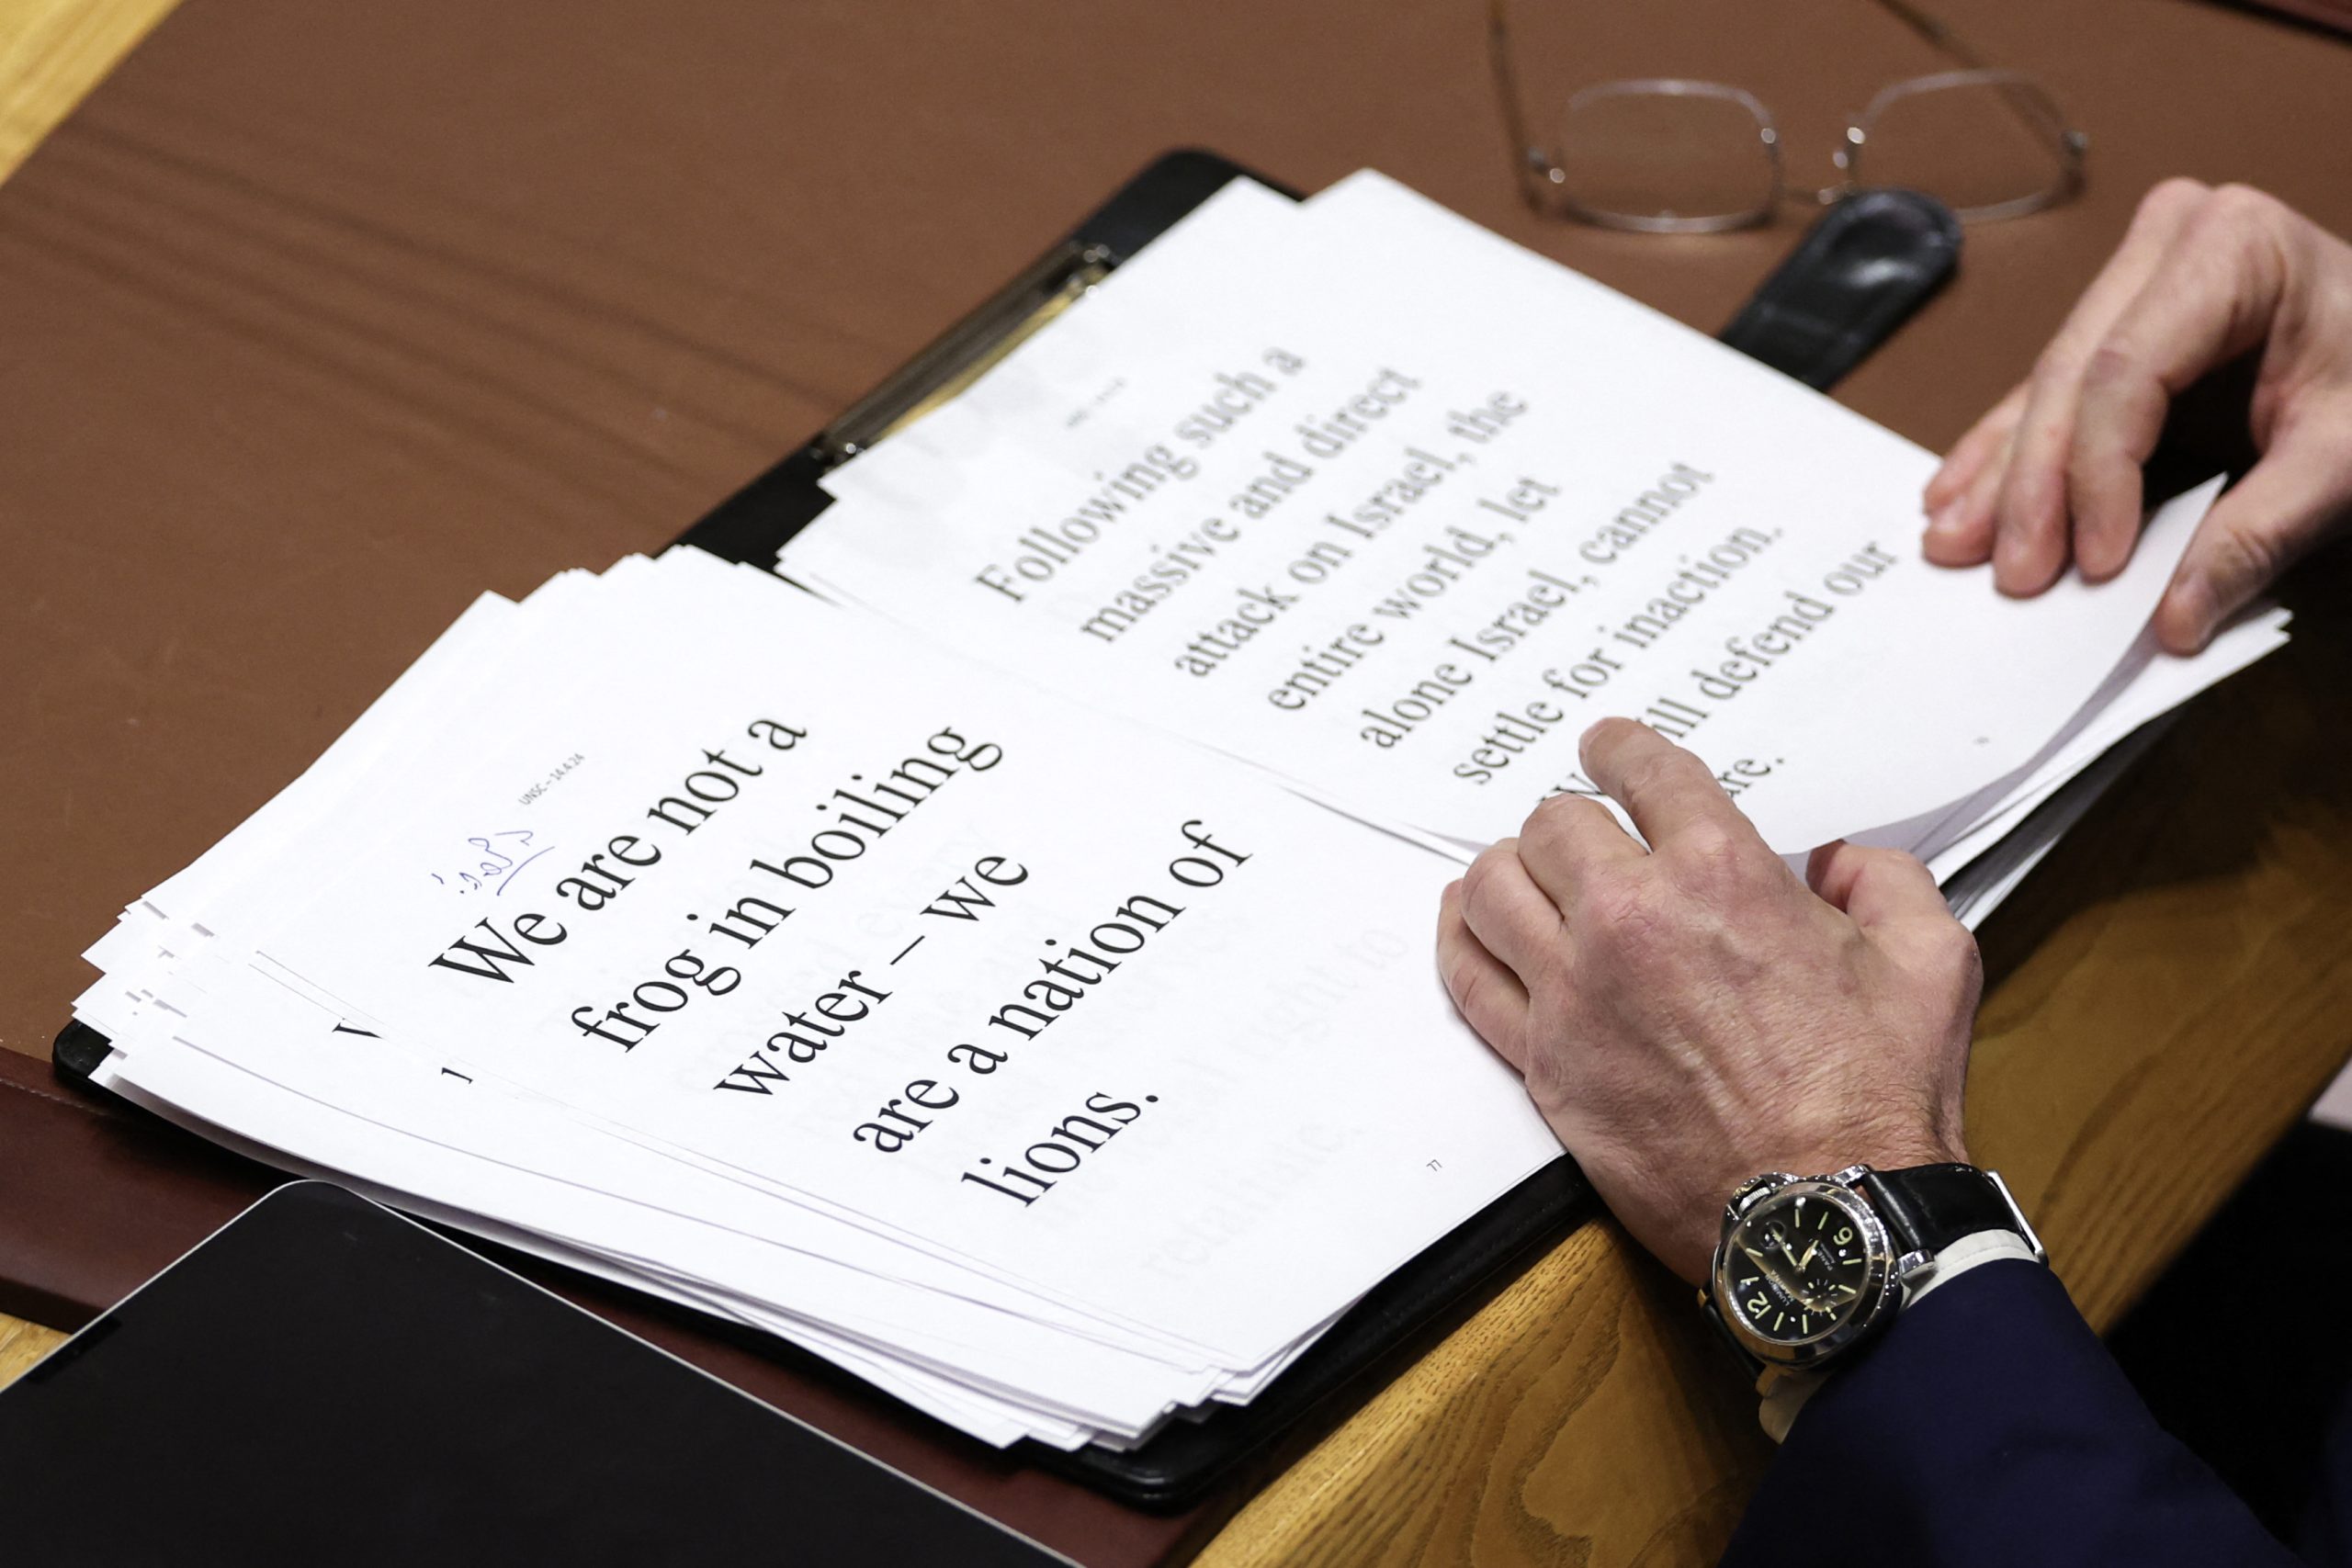 UNSC – 14.4.24
We are not a
frog in boiling
water – we
are a nation of
lions.
77
Following such a
massive and direct
attack on Israel, the
entire world, let
alone Israel, cannot
settle for inaction.
will defend our
12
6